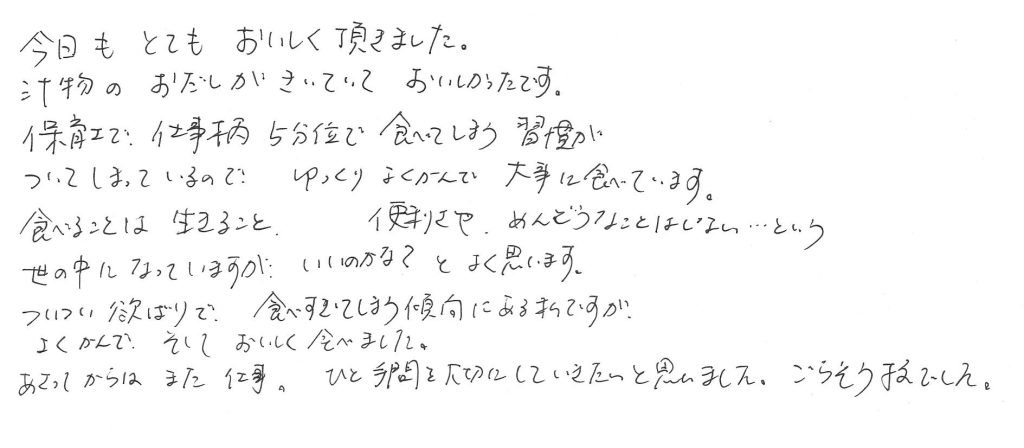 今日も とても おいしく頂きました。
汁物の おだしがきいていて おいしかったです。
保育士で、仕事柄 5分位で 食べてしまう 習慣が
ついてしまっているので、 ゆっくり よくかんで 大事に食べています。
食べることは 生きること、 便利さや、めんどうなことはしない…という
世の中になっていますが、いいのかな？と よく思います。
ついつい欲ばりで、 食べすぎてしまう傾向にある私ですが、
よくかんで、そして おいしく食べました。
あさってからは また 仕事。 ひと手間を大切にしていきたいと思いました。ごちそう様でした。